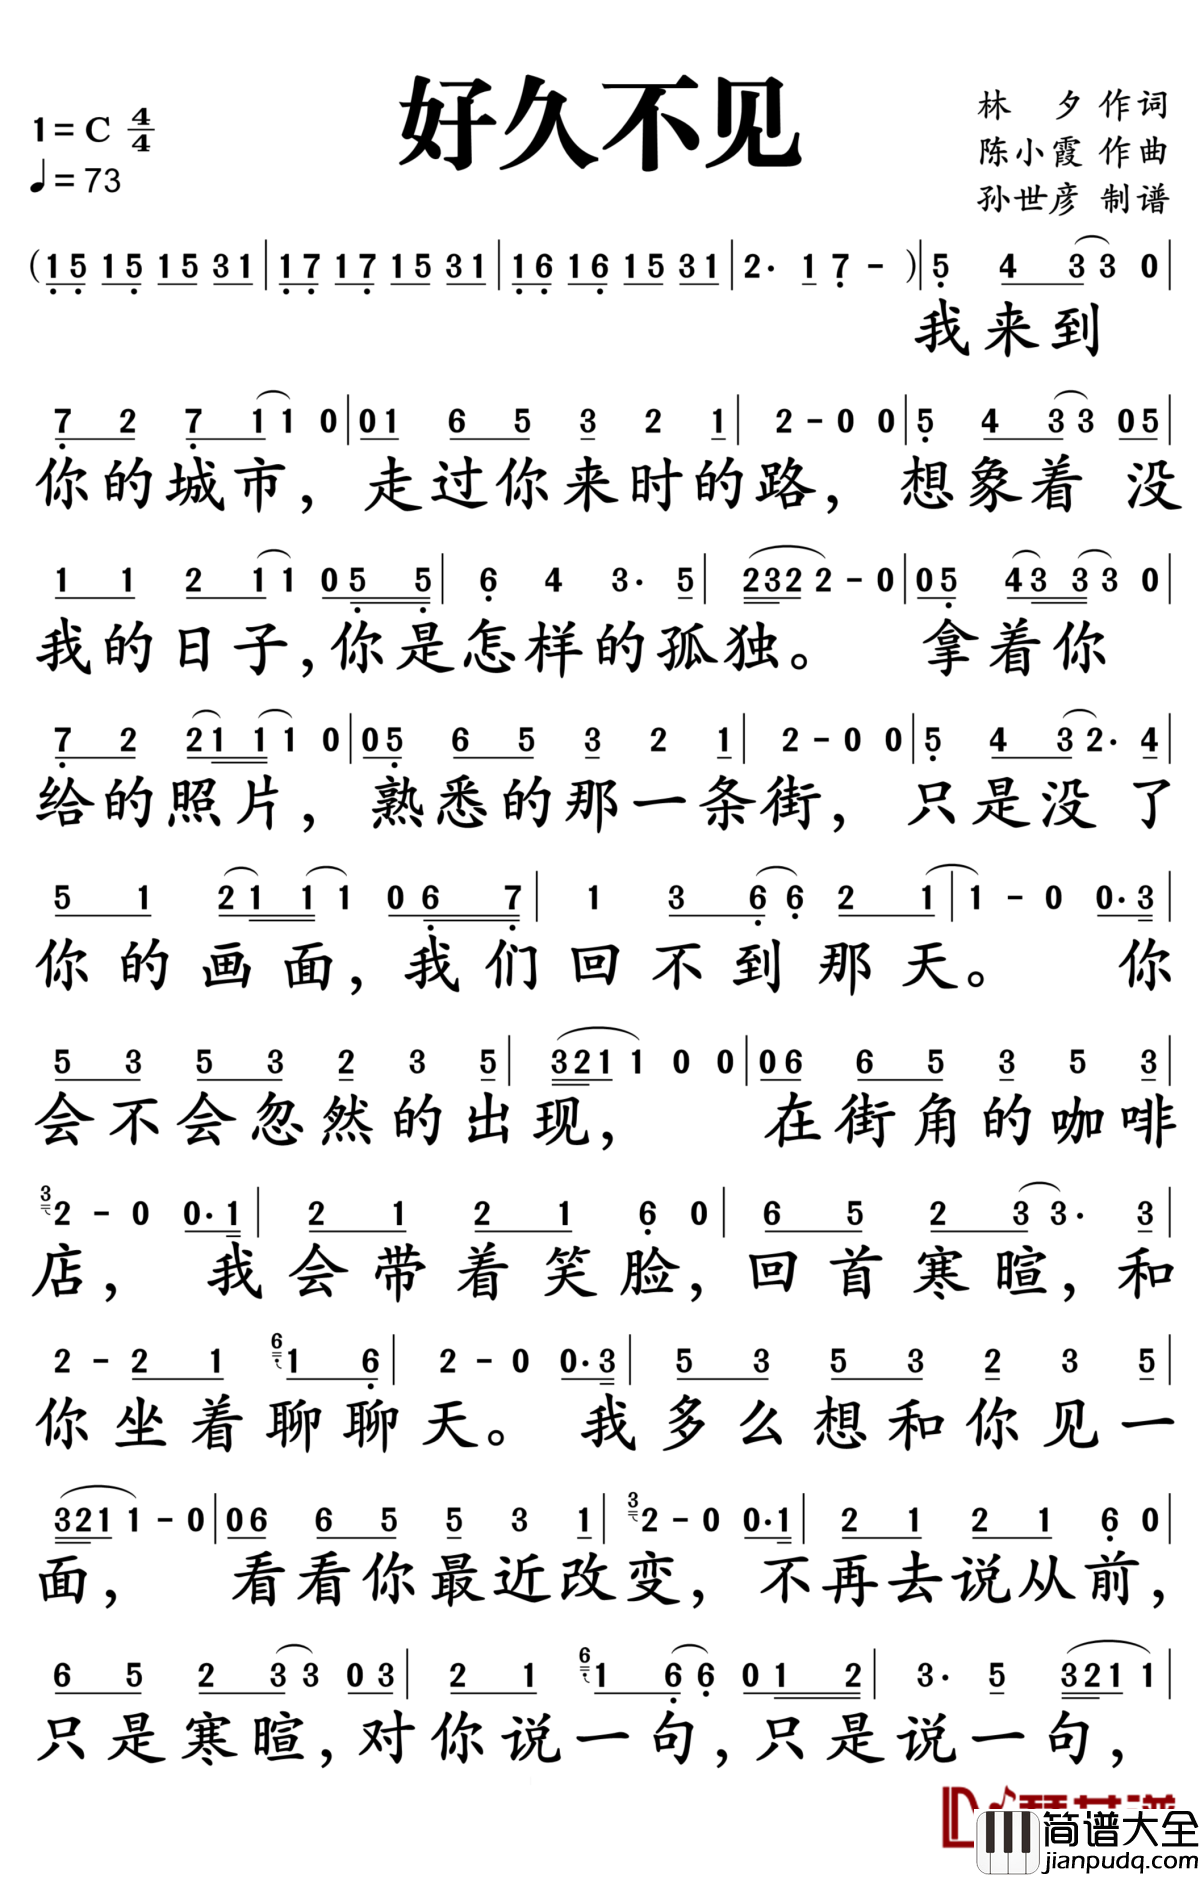 好久不见
1=C 4/4
♩=73
林 夕 作词
陈小霞 作曲
孙世彦 制谱
(15 15 15 31|17 17 15 31|16 16 15 31|2· 1 7 - )|5 4 33 0|
我来到
7 2 7 11 0|01 6 5 3 2 1|2-0 0|5 4 33 05|
你的城市，走过你来时的路，想象着 没
1 1 2 11 05 5|6 4 3· 5|2322-0|05 43 33 0|
我的日子，你是怎样的孤独。 拿着你
7 2 21 11 0|05 6 5 3 2 1|2-0 0|5 4 32· 4|
给的照片，熟悉的那一条街，只是没了
5 1 21 11 06 7|1 3 66 2 1|1-0 0·3|
你的画面，我们回不到那天。 你
5 3 5 3 2 3 5|3211 0 0|06 6 5 3 5 3|
会不会忽然的出现， 在街角的咖啡
3 2-0 0·1|2 1 2 1 6 0|6 5 2 33· 3|
店， 我会带着笑脸，回首寒暄，和
2-2 1 6 1 6|2-0 0·3|5 3 5 3 2 3 5|
你坐着聊聊天。我多么想和你见一
3211-0|06 6 5 5 3 1|3 2-0 0·1|2 1 2 1 6 0|
面， 看看你最近改变，不再去说从前，
6 5 2 33 03|2 1 6 1 66 01 2|3· 5 3211|
只是寒暄，对你说一句，只是说一句，
简谱大全
jianpudq.com